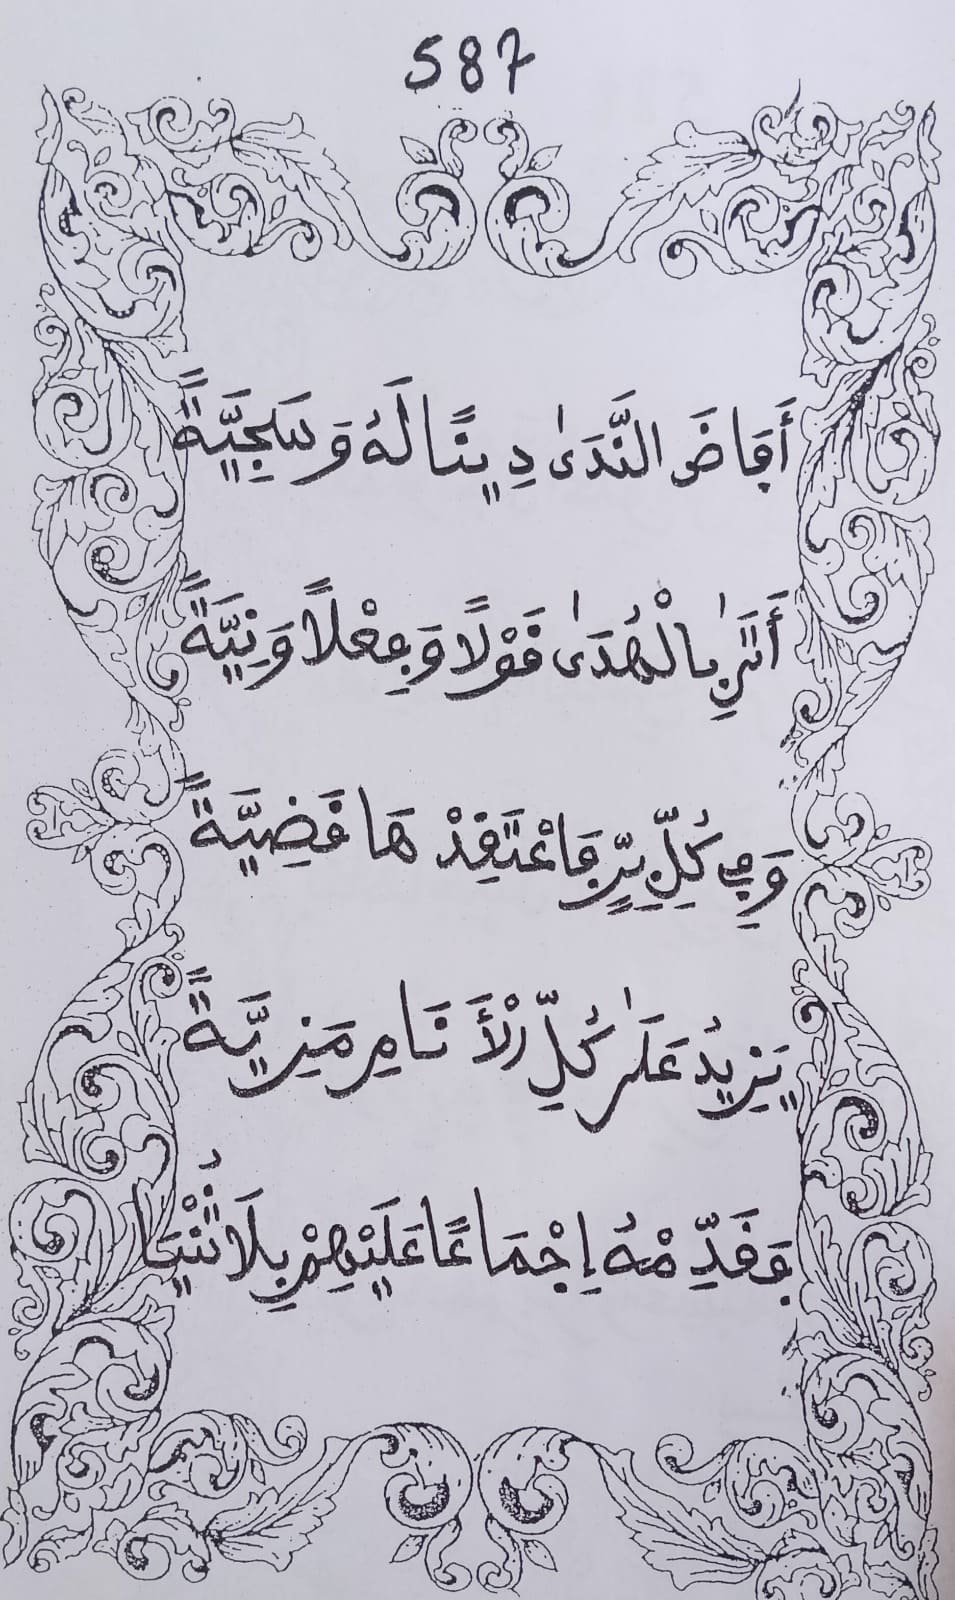 587
أَفَاضَ النَّدَىٰ دِينًا لَهُ وَسَجِيَّةً
أَتَىٰ بِالْهُدَىٰ قَوْلًا وَفِعْلًا وَنِيَّةً
وَفِي كُلِّ بِرٍّ فَاعْتَقِدْهَا قَضِيَّةً
يَزِيدُ عَلَىٰ كُلِّ الْأَنَامِ مَزِيَّةً
فَقَدِّمْهُ إِجْمَاعًا عَلَيْهِمْ بِلَا ثُنْيَا